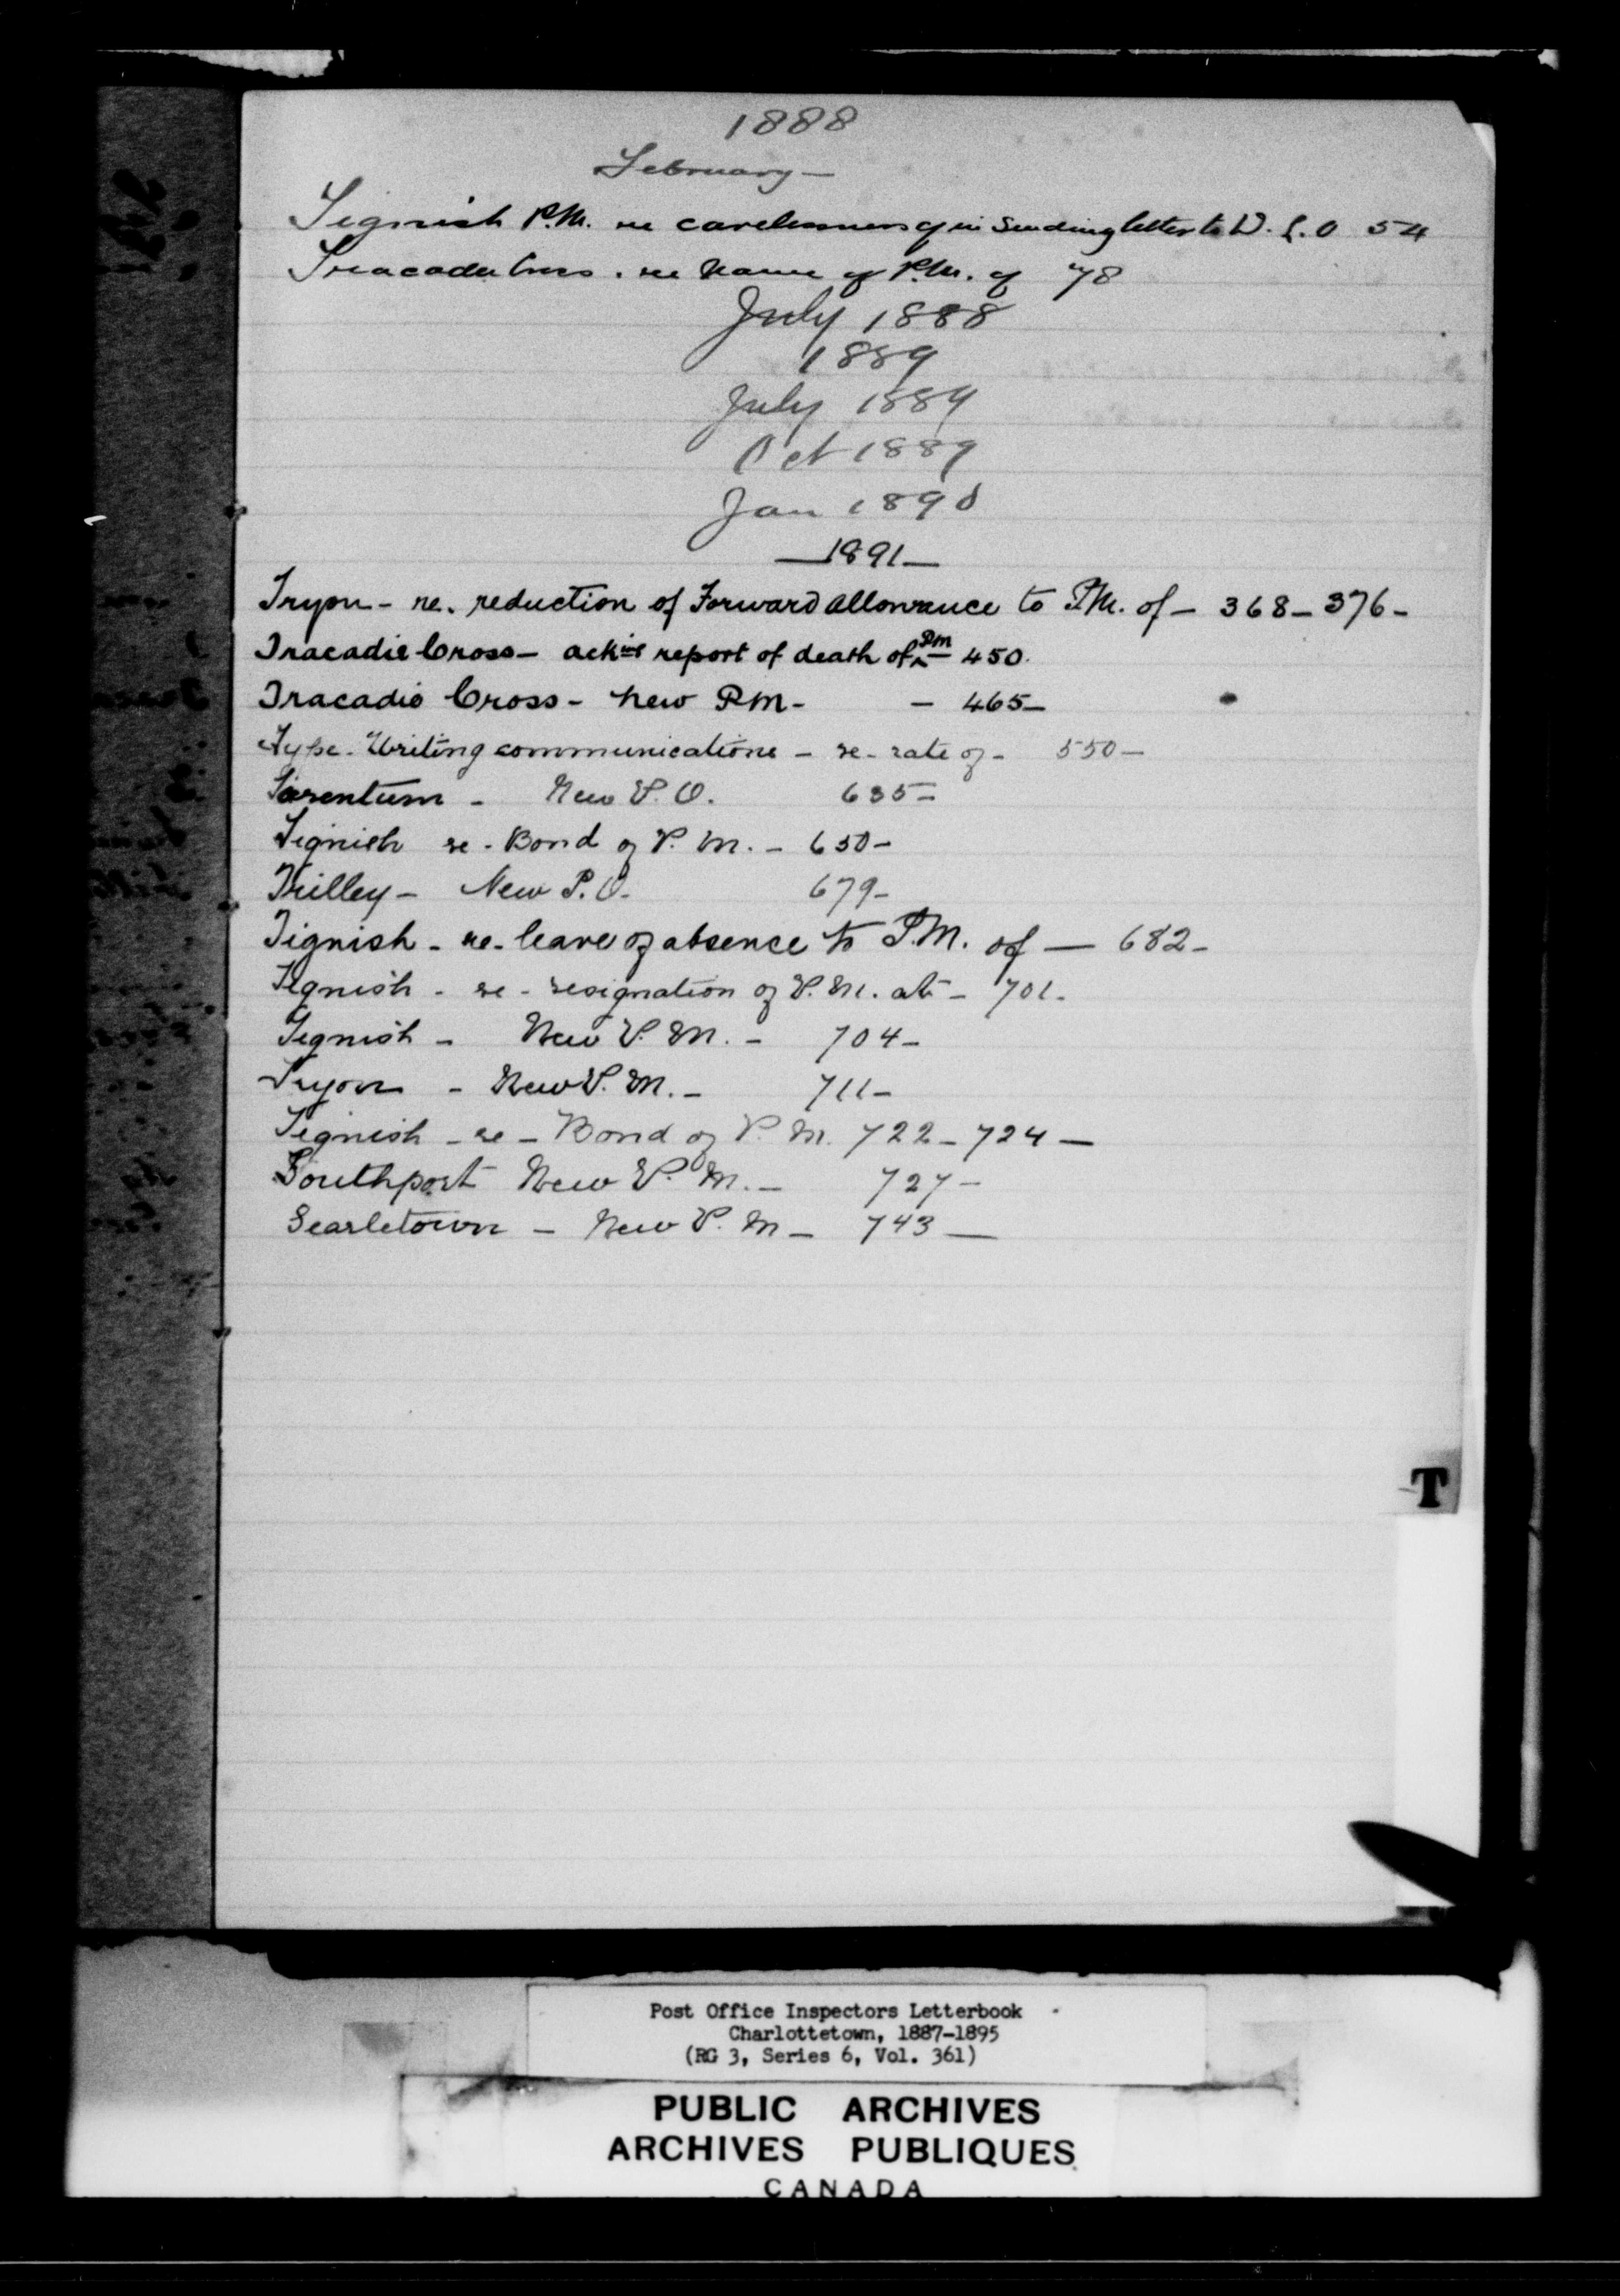 1888
February —
Tignish P.M. re carelessness of in sending letter to D.L.O 54
Tracadie Cross. re name of P.M. of 78
July 1888
1889
July 1889
Oct 1889
Jan 1890
— 1891 —
Tryon - re. reduction of Forward allowance to P.M. of — 368 — 376 —
Tracadie Cross — ack'ing report of death of PM — 450.
Tracadie Cross - New PM - — 465 —
Type-Writing communications — re - rate of - 550 —
Tarentum - New P.O. 635 —
Tignish re - Bond of P.M. — 650 —
Tilley — New P.O. 679 -
Tignish - re - leave of absence to P.M. of — 682 -
Tignish - re - resignation of P.M. at — 701 -
Tignish - New P.M. - 704 -
Tryon - New P.M. - 711 -
Tignish - re - Bond of P.M. 722 - 724 —
Southport New P.M. - 727 -
Searletown - New P.M - 743 —
T
Post Office Inspectors Letterbook
Charlottetown, 1887-1895
(RG 3, Series 6, Vol. 361)
PUBLIC ARCHIVES
ARCHIVES PUBLIQUES
CANADA